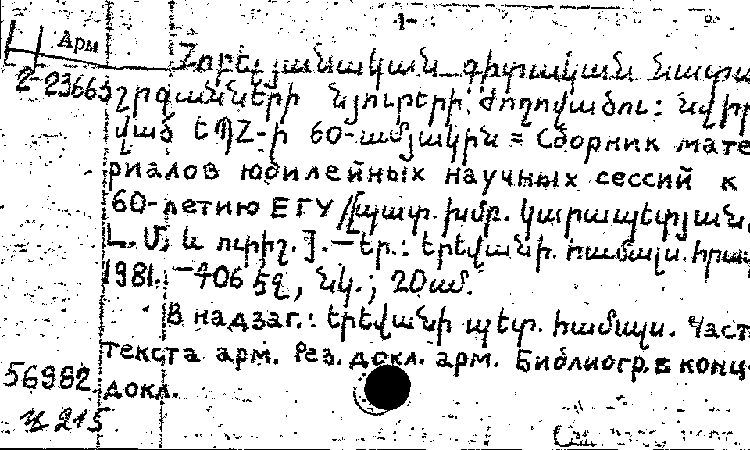 Арм
Հոբելյանական գիտական նստա
2-23665 շրջանների նյութերի ժողովածու: նվիր
ված ԵՊՀ-ի 60-ամյակին = Сборник мате
риалов юбилейных научных сессий к
60-летию ЕГУ /[պատ. խմբ. Կարապետյան
Լ. Մ. և ուրիշ.]. — Եր.: Երևանի համալս. հրատ
1981. — 406 էջ, նկ.; 20սմ.
В надзаг.: Երևանի պետ. համալս. Част
текста арм. Рез. докл. арм. Библиогр. в конц
56982 докл.
215